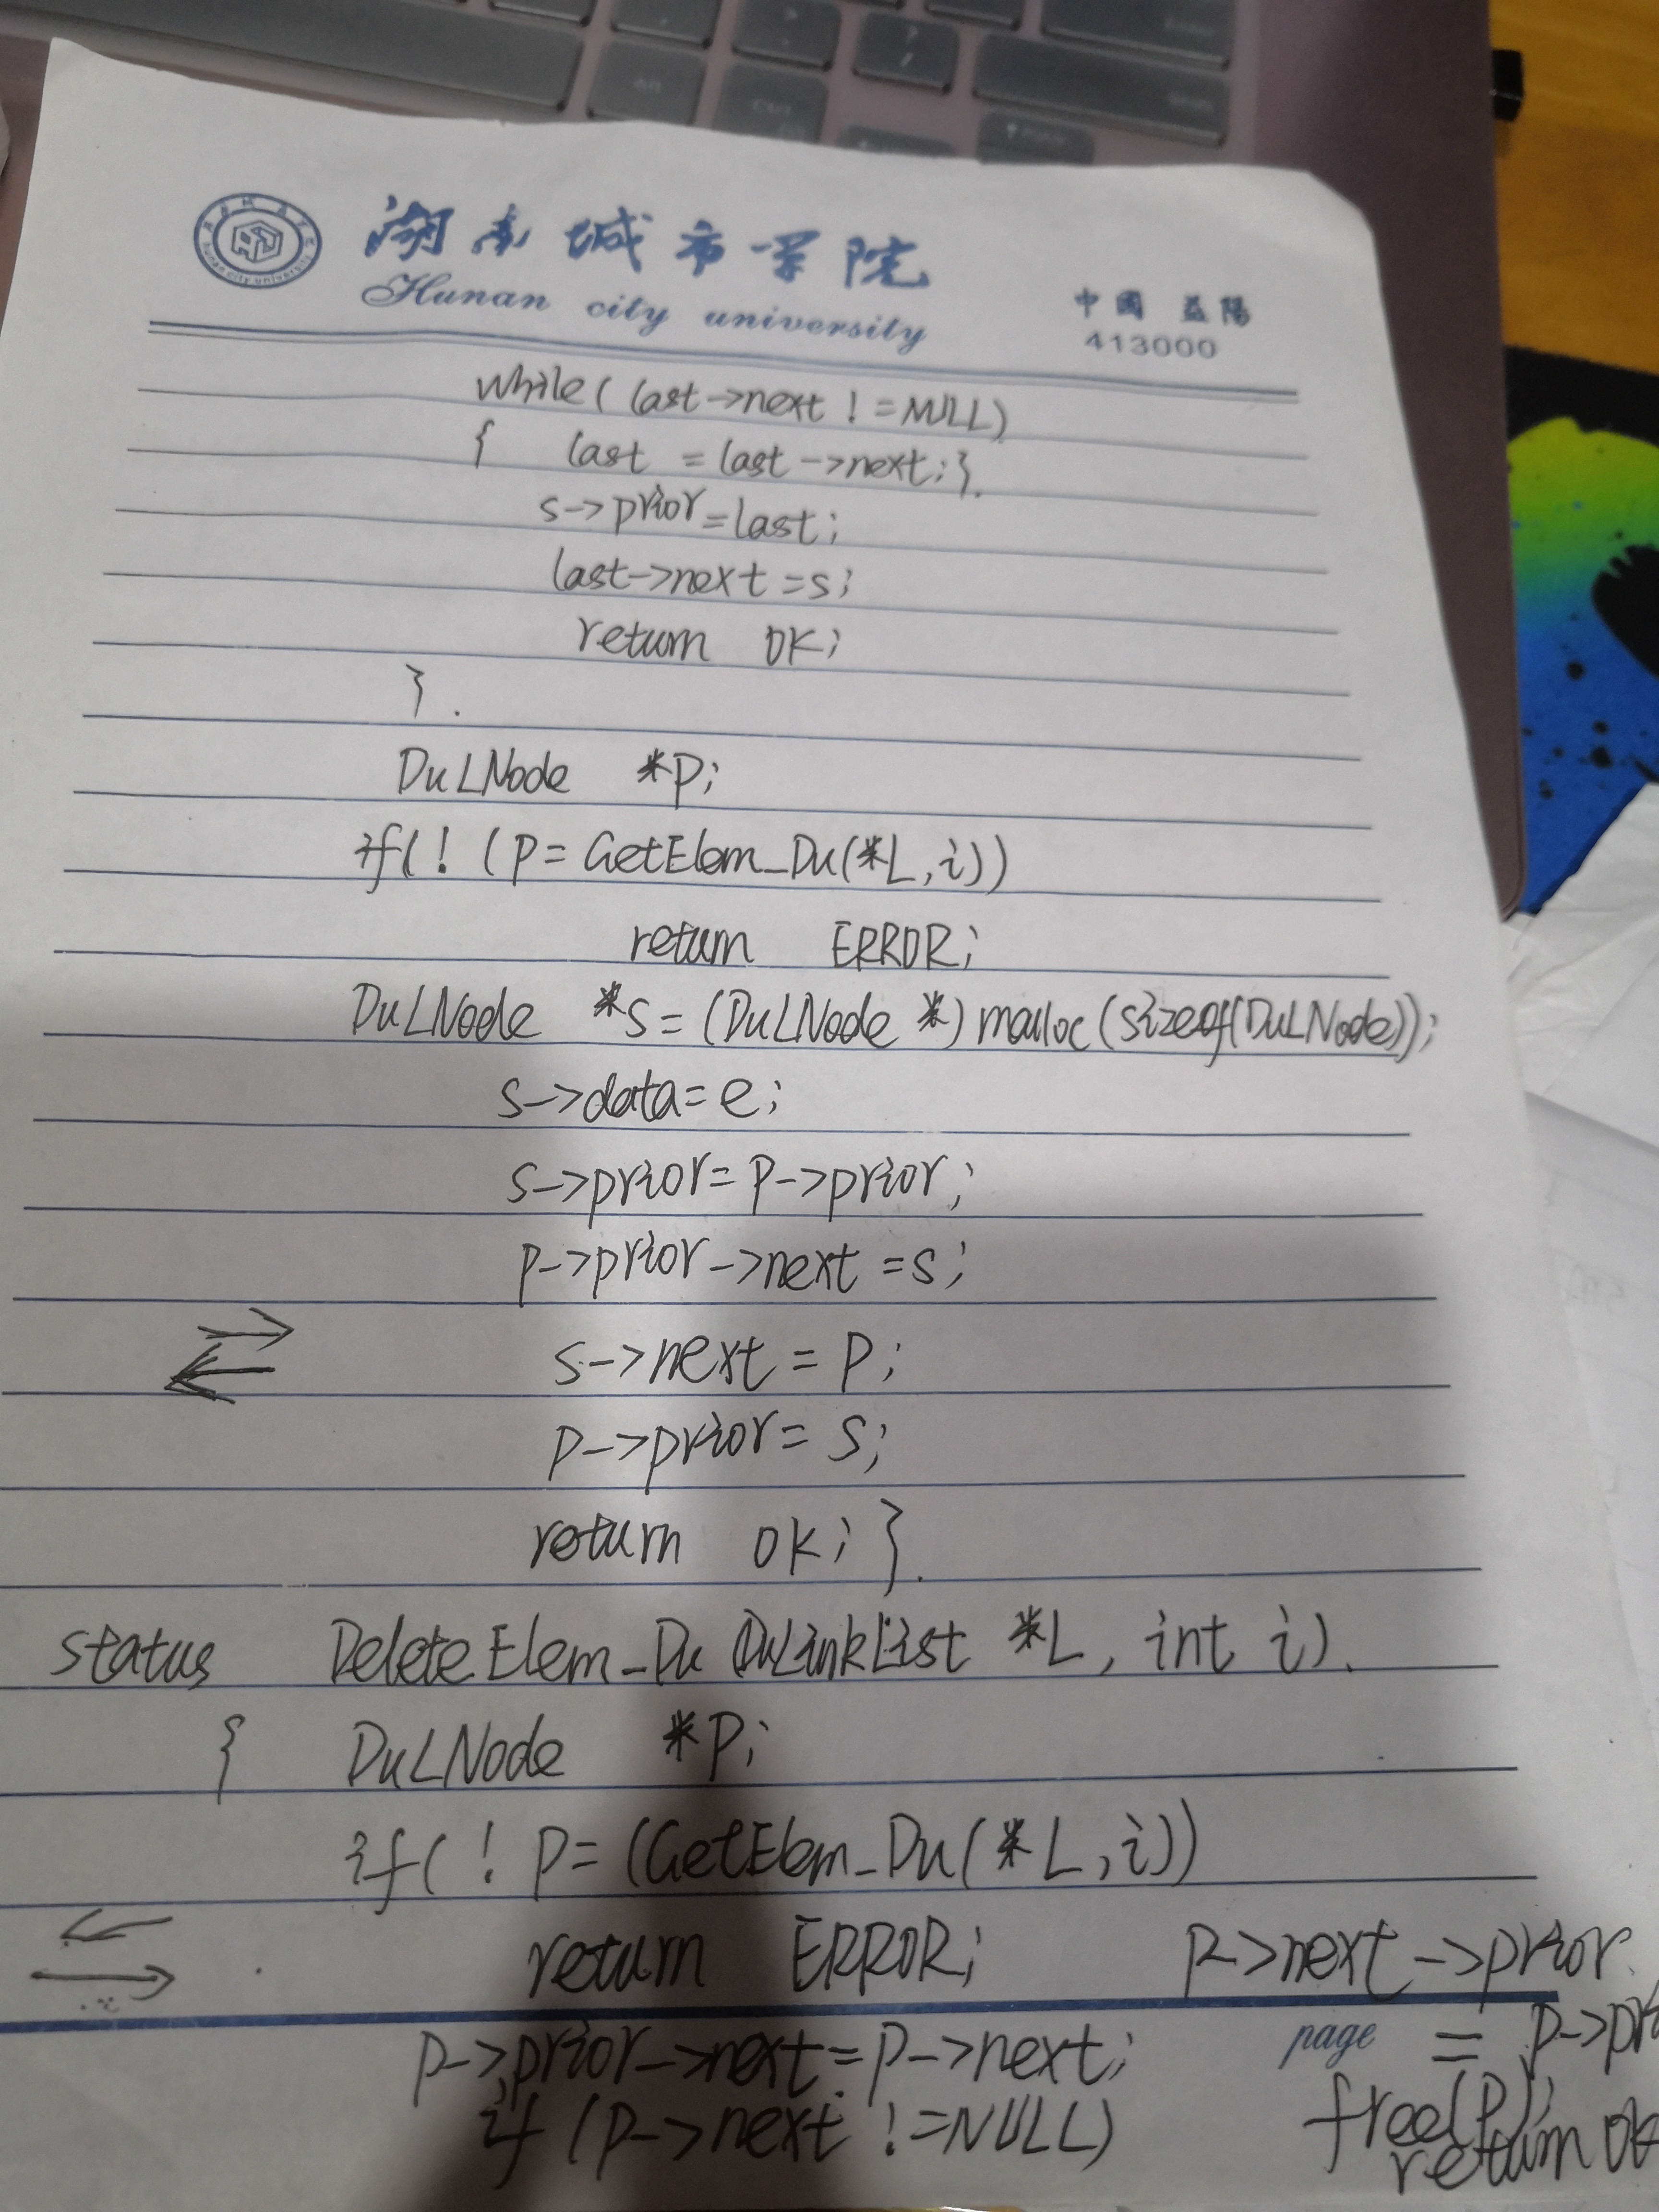 湖南城市学院
Hunan city university
中國 益陽
413000
while(last->next !=NULL)
{ last = last->next;}.
s->prior=last;
last->next=s;
return OK;
}.
DuLNode *p;
if(! (p=GetElem_Du(*L,i))
return ERROR;
DuLNode *s=(DuLNode *)malloc(sizeof(DuLNode));
s->data=e;
s->prior=p->prior;
p->prior->next=s;
s->next=p;
p->prior=s;
return OK;}.
status DeleteElem_Du(DuLinkList *L, int i).
{ DuLNode *p;
if(! p=(GetElem_Du(*L,i))
return ERROR;
p->prior->next=p->next;
if (p->next !=NULL)
p->next->prior
page
= p->pri
free(p);
return OK